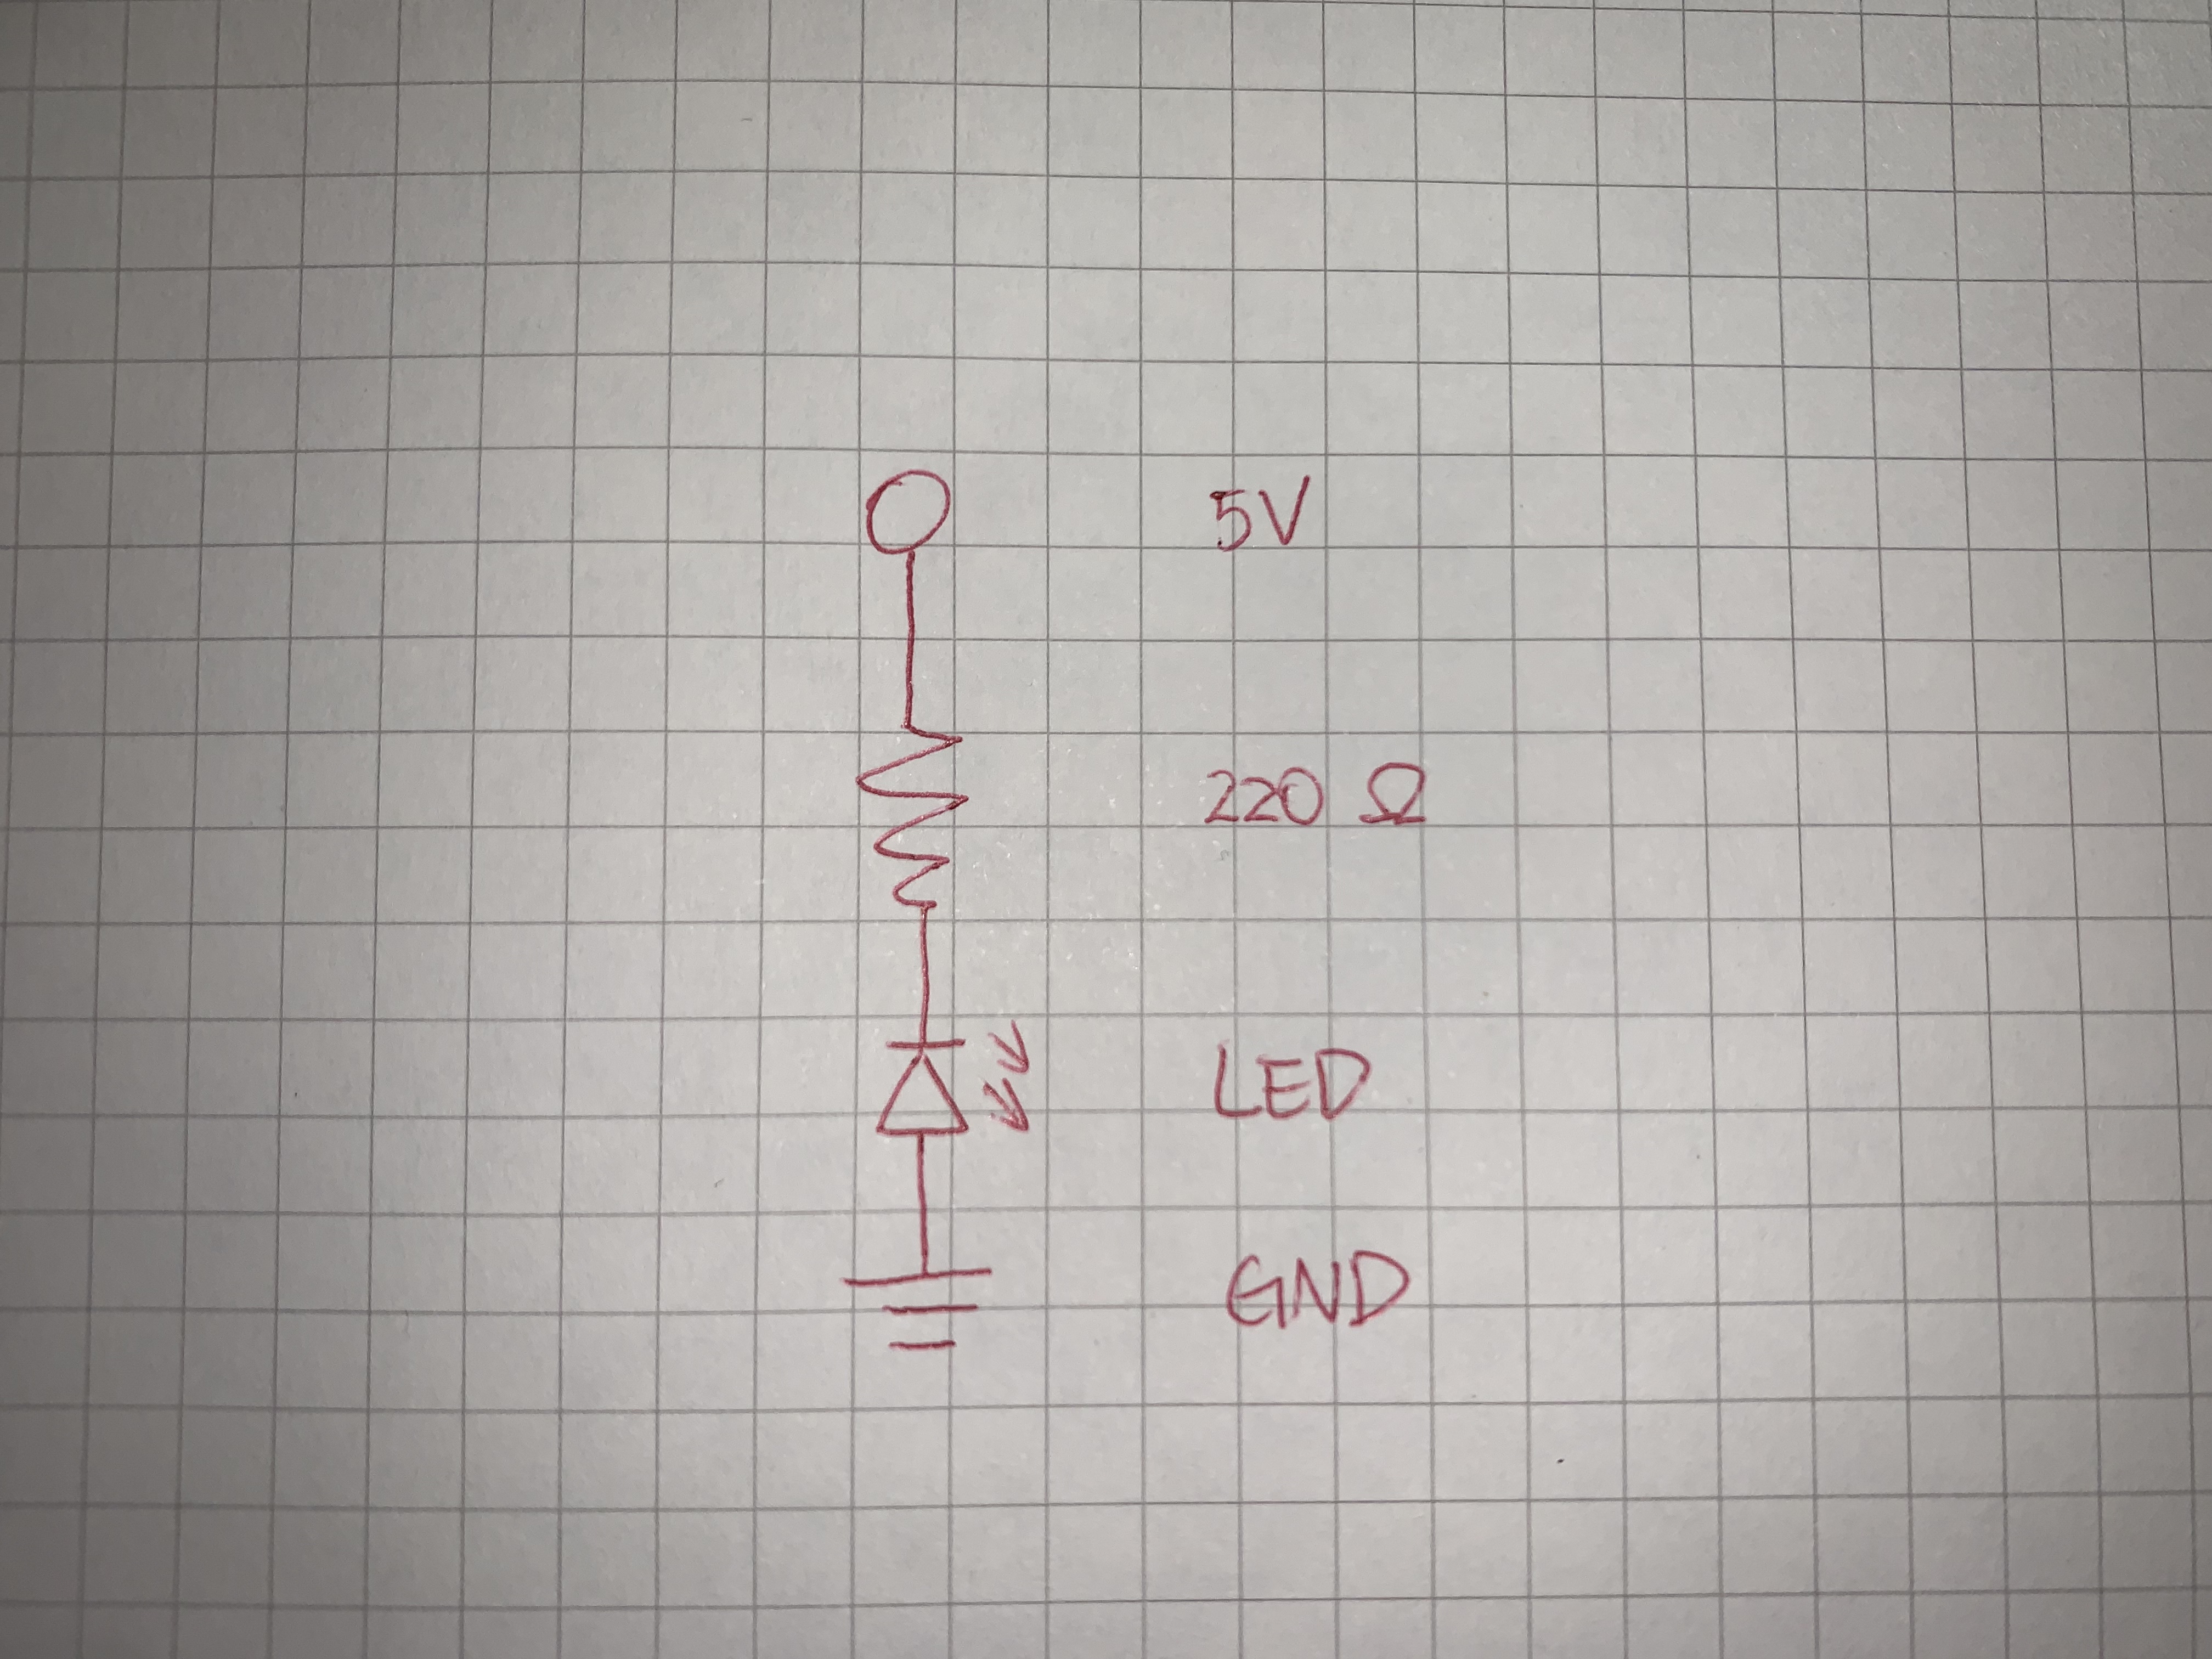 5V
220 Ω
LED
GND